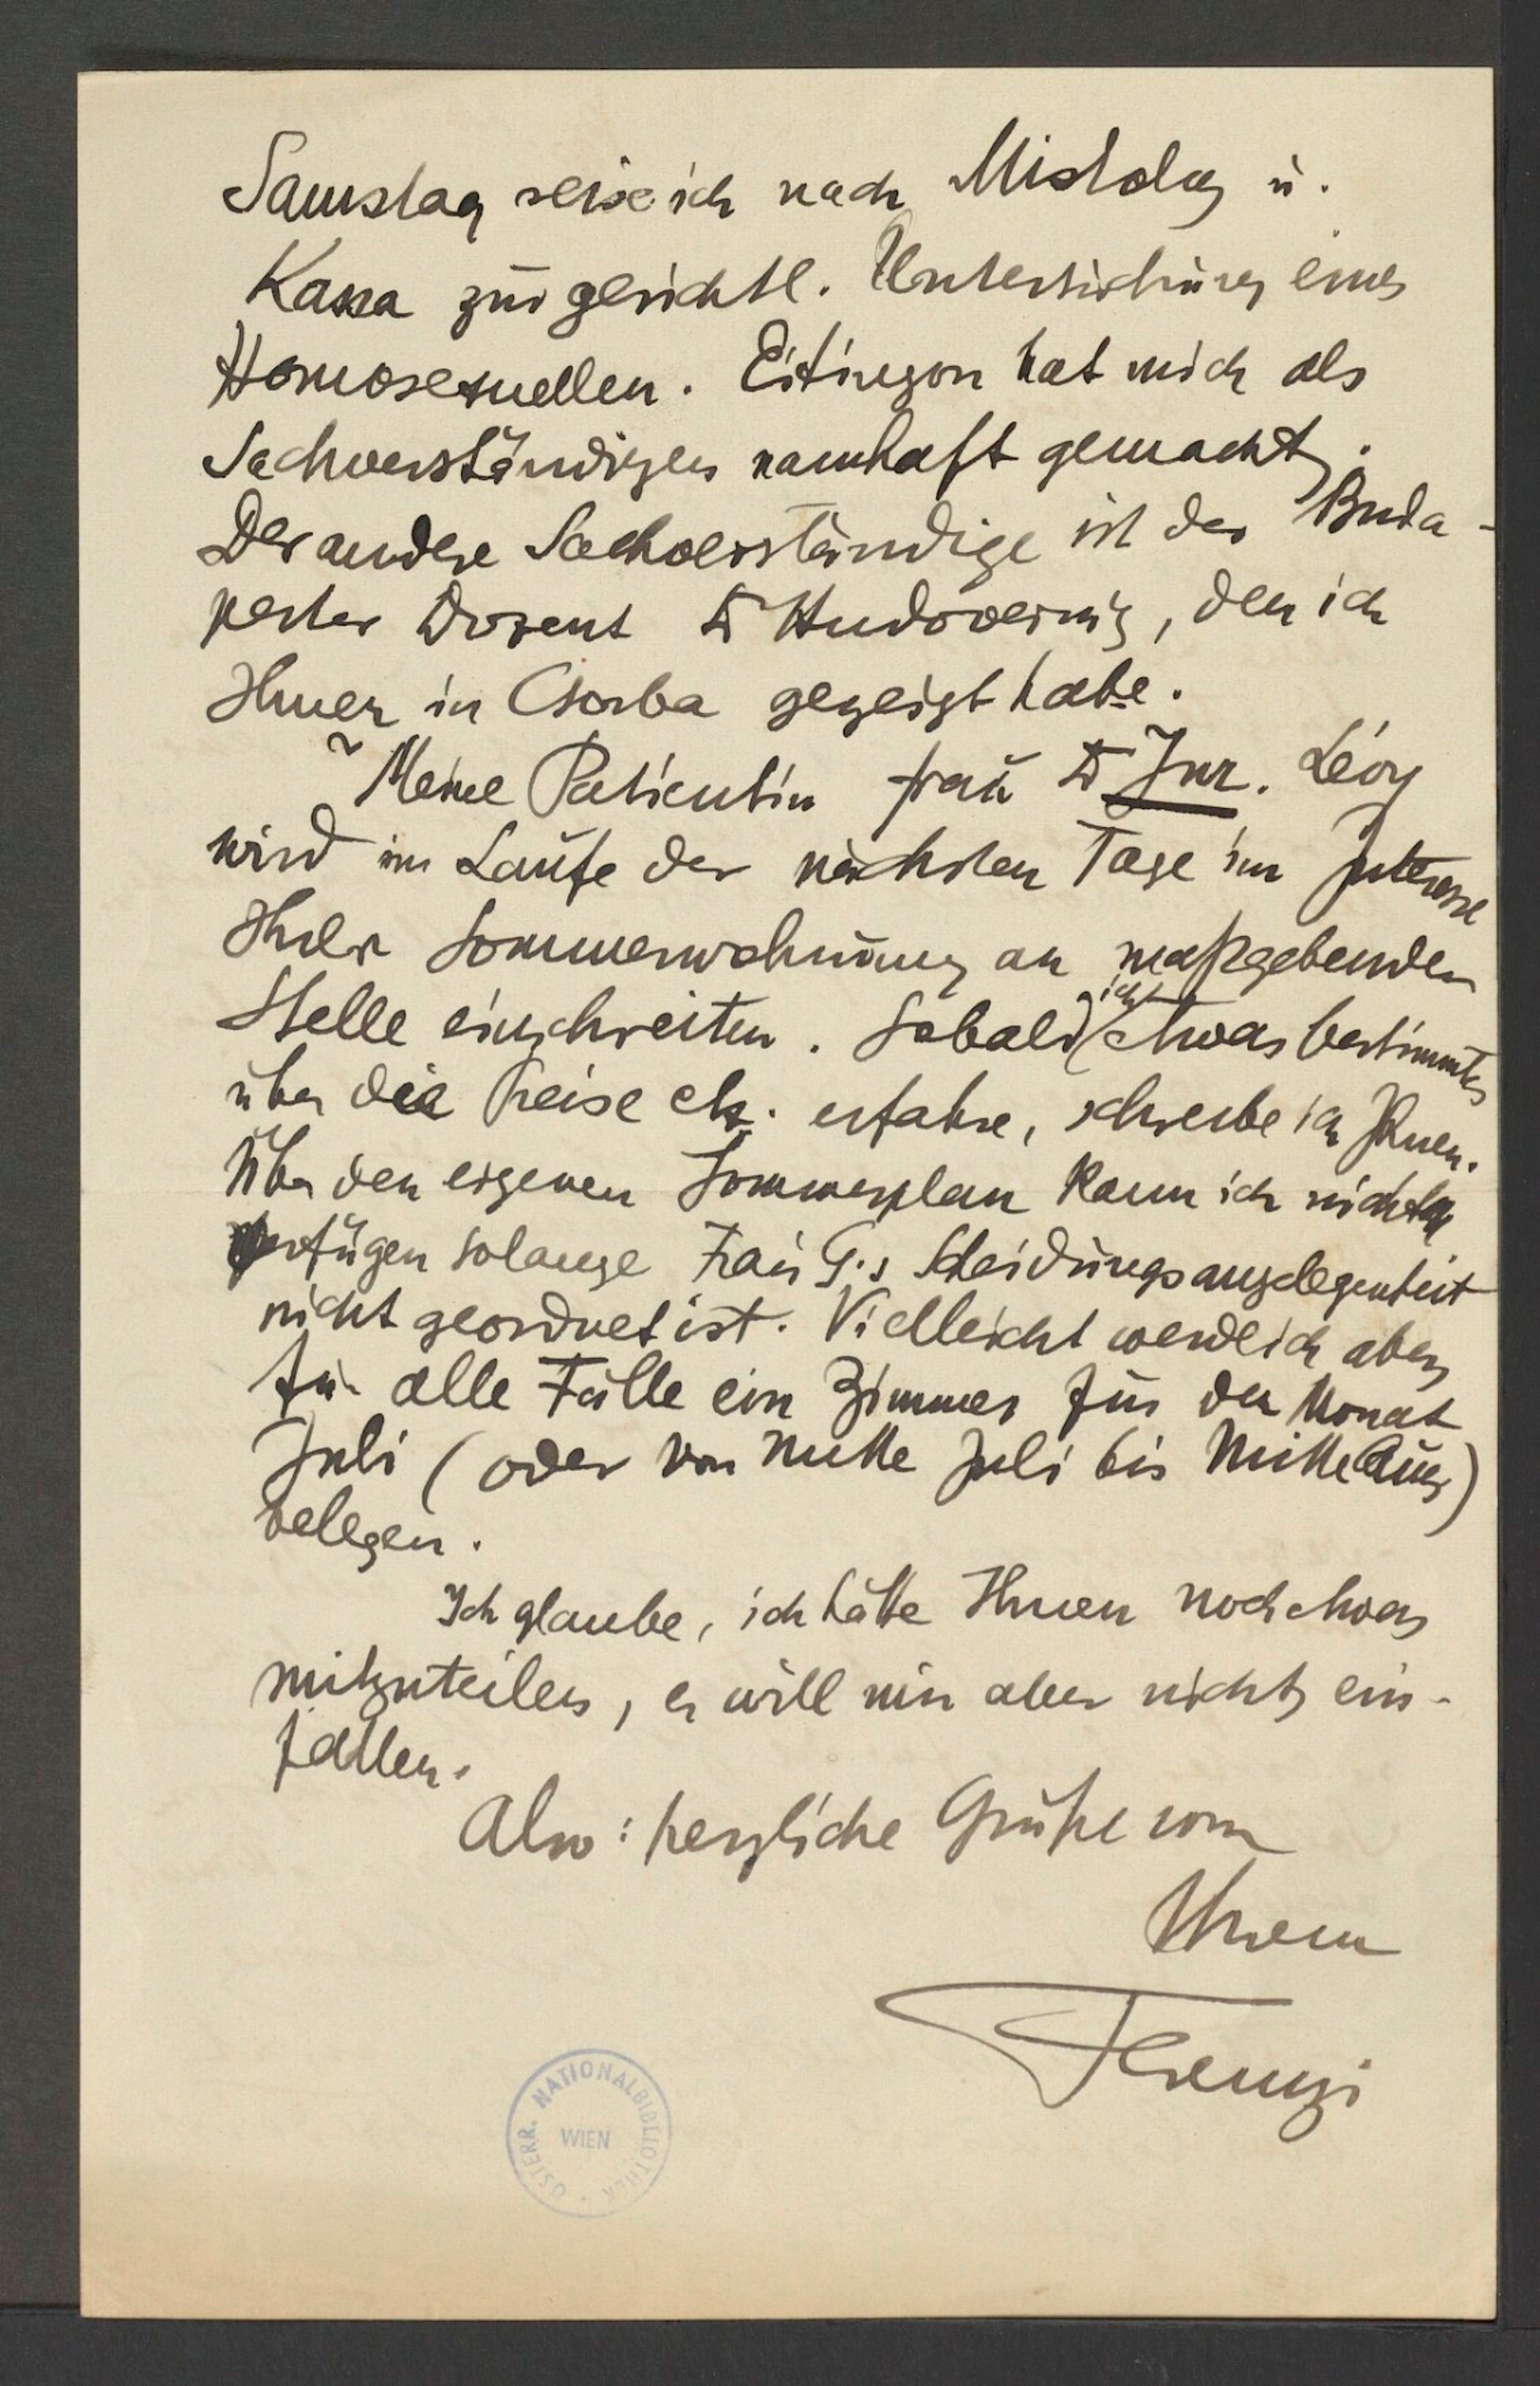 Samstag reise ich nach Miskolcz u.
Kassa zur gerichtl. Untersuchung eines
Homosexuellen. Eitingon hat mich als
Sachverständigen namhaft gemacht.
Der andere Sachverständige ist der Buda-
pester Dozent Dr Hudovernig, den ich
Ihnen in Csorba gezeigt habe.
Meine Patientin Frau Dr Jur. Lévy
wird im Laufe der nächsten Tage im Interesse
Ihrer Sommerwohnung an maßgebender
Stelle einschreiten. Sobald ich etwas bestimmtes
über die Preise etz. erfahre, schreibe ich Ihnen.
Über den eigenen Sommerplan kann ich nichts
verfügen solange Frau G.s Scheidungsangelegenheit
nicht geordnet ist. Vielleicht werde ich aber
für alle Fälle ein Zimmer für den Monat
Juli (oder von Mitte Juli bis Mitte Aug)
belegen.
Ich glaube, ich hätte Ihnen noch etwas
mitzuteilen, es will mir aber nichts ein-
fallen.
Also: herzliche Grüße vom
Ihrem
Ferenczi
ÖSTERR. NATIONALBIBLIOTHEK
WIEN